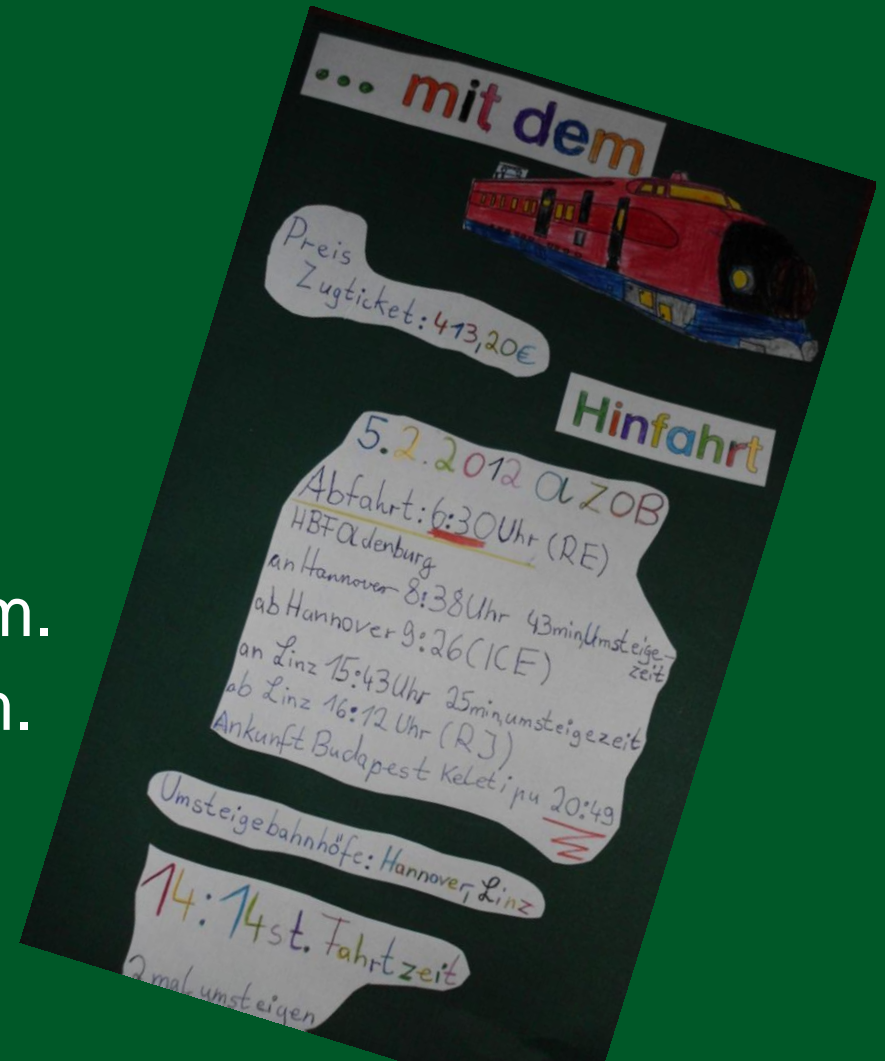 ... mit dem
Preis
Zugticket: 413,20€
Hinfahrt
5.2.2012 Ol ZOB
Abfahrt: 6:30 Uhr (RE)
HBF Oldenburg
an Hannover 8:38 Uhr 43min, Umsteige-
zeit
ab Hannover 9:26 (ICE)
an Linz 15:43 Uhr 25min, umsteigezeit
ab Linz 16:12 Uhr (RJ)
Ankunft Budapest Keleti pu 20:49
Umsteigebahnhöfe: Hannover, Linz
14:14 st. Fahrtzeit
2 mal umsteigen
m.